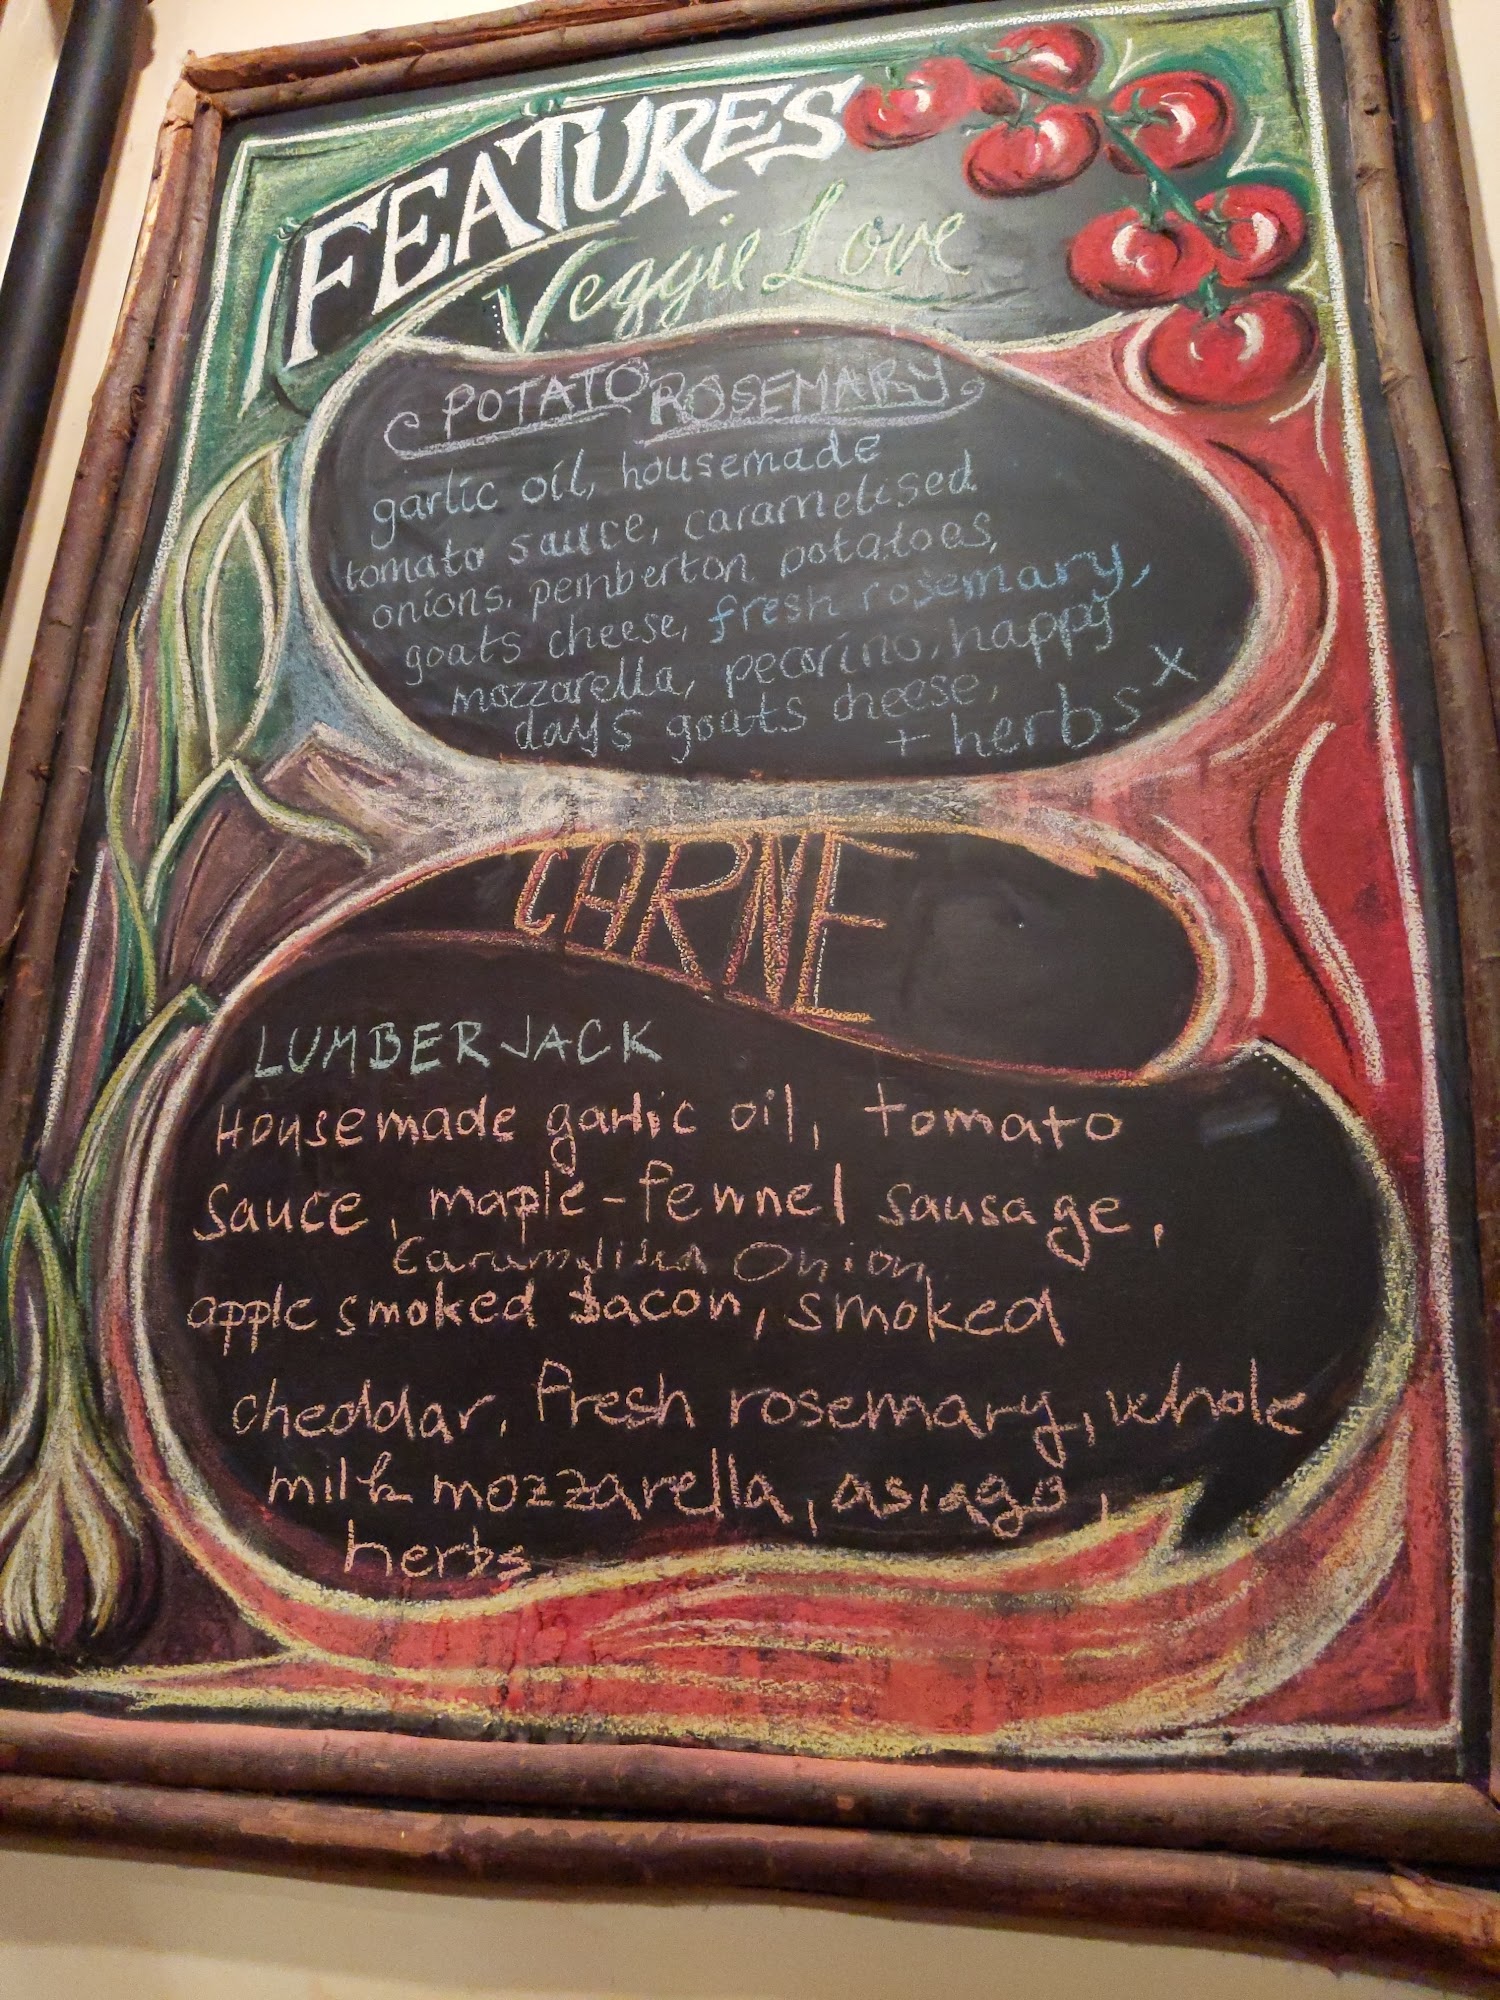 FEATURES
Veggie Love
POTATO ROSEMARY
garlic oil, housemade
tomato sauce, caramelised
onions, pemberton potatoes,
goats cheese, fresh rosemary,
mozzarella, pecorino, happy
days goats cheese,
+ herbs x
CARNE
LUMBERJACK
Housemade garlic oil, tomato
sauce, maple-fennel sausage,
Caramelised Onion
apple smoked bacon, smoked
cheddar, fresh rosemary, whole
milk mozzarella, asiago,
herbs